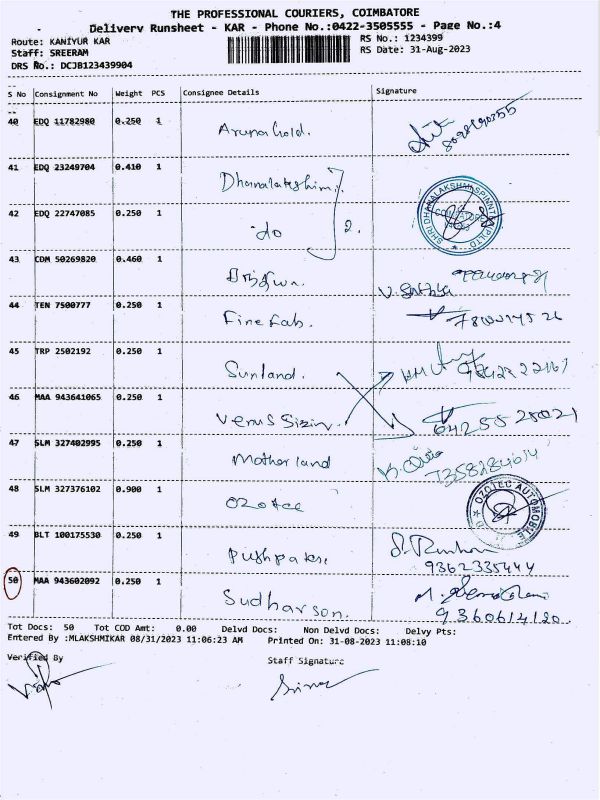 THE PROFESSIONAL COURIERS, COIMBATORE
Delivery Runsheet - KAR - Phone No.:0422-3505555 - Page No.:4
Route: KANIYUR KAR
RS No.: 1234399
Staff: SREERAM
RS Date: 31-Aug-2023
DRS No.: DCJB123439904
S No Consignment No Weight PCS Consignee Details Signature
40 EDQ 11782980 0.250 1 Aruna Gold.
41 EDQ 23249704 0.410 1
42 EDQ 22747085 0.250 1 do 2.
SHRI DHANALAKSHMI SPINNTEX (P) LTD
43 CDM 50269820 0.460 1
44 TEN 7500777 0.250 1 Fine Fab.
45 TRP 2502192 0.250 1 Sunland.
46 MAA 943641065 0.250 1 Venus
47 SLM 327402995 0.250 1 Motherland
48 SLM 327376102 0.900 1 Ozotec
OZOTEC AUTOMOBILE
49 BLT 100175530 0.250 1
9362335444
50 MAA 943602092 0.250 1 Sudharson.
9360614120
Tot Docs: 50 Tot COD Amt: 0.00 Delvd Docs: Non Delvd Docs: Delvy Pts:
Entered By :MLAKSHMIKAR 08/31/2023 11:06:23 AM Printed On: 31-08-2023 11:08:10
Verified By Staff Signature